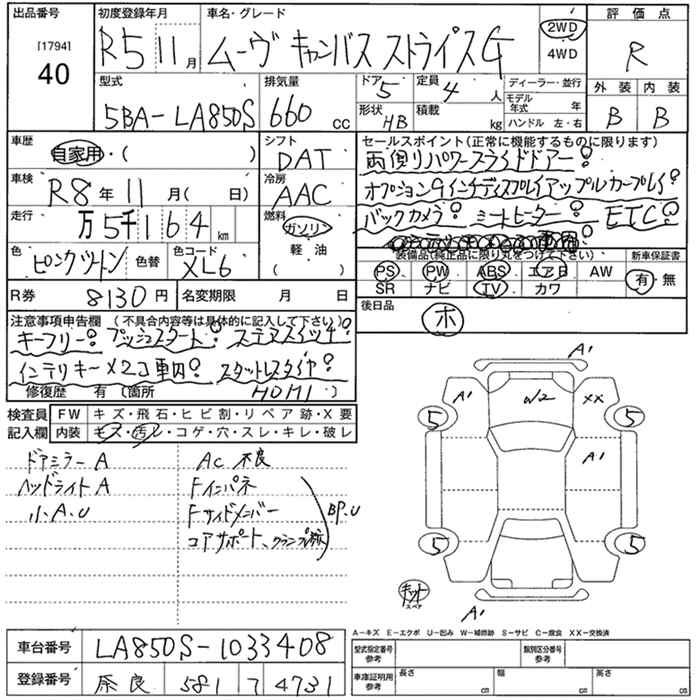 出品番号
[1794]
40
初度登録年月
R5 11月
車名・グレード
ムーヴ キャンバス ストライプスG
2WD
4WD
評価点
R
外装 内装
B B
型式
5BA-LA850S
排気量
660 cc
ドア 5
定員 4 人
形状 HB
積載 kg
ディーラー・並行
モデル年式 年
ハンドル 左・右
車歴
自家用・( )
シフト
DAT
車検
R8年11月( 日)
冷房
AAC
走行
万5千164km
燃料
ガソリン
軽・油
( )
色
ピンクツートン
色替
色コード
XL6
R券 8130円
名変期限 月 日
セールスポイント(正常に機能するものに限ります)
両側リパワースライドドアー!
オプション9インチディスプレイアップルカープレイ!
バックカメラ! シートヒーター! ETC!
装備品(純正品に限り丸をつけて下さい)
新車保証書
PS PW ABS エアB AW
SR ナビ TV カワ
有・無
後日品
ホ
注意事項申告欄 (不具合内容等は具体的に記入して下さい)
キーフリー! プッシュスタート! ステアスイッチ!
インテリキー×2コ車内! スタットレスタイヤ!
修復歴 有 〔箇所 HOMI 〕
検査員記入欄
FW キズ・飛石・ヒビ割・リペア跡・X要
内装 キズ・汚レ・コゲ・穴・スレ・キレ・破レ
ドアミラーA
ヘッドライトA
小A.U
AC不良
Fインパネ
Fサイドメンバー
コアサポート、クランプ跡
BP.U
A1
A1
W2
XX
5
5
A1
5
5
キット
スペア
A1
A-キズ E-エクボ U-凹み W-補修跡 S-サビ C-腐食 XX-交換済
車台番号 LA850S-1033408
登録番号 奈良 581 ワ 4731
型式指定番号 参考
類別区分番号 参考
車庫証明用 参考
長さ cm
幅 cm
高さ cm